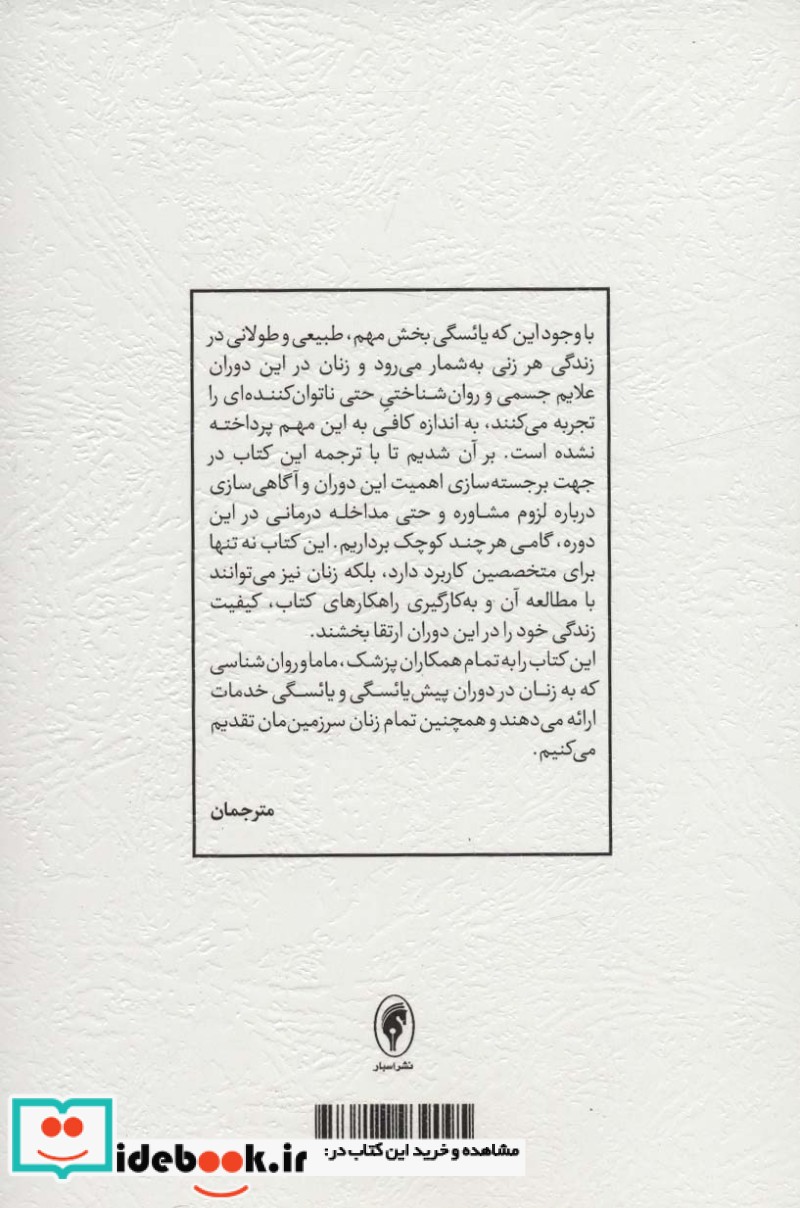 با وجود این که یائسگی بخش مهم، طبیعی و طولانی در
زندگی هر زنی به‌شمار می‌رود و زنان در این دوران
علایم جسمی و روان‌شناختیِ حتی ناتوان‌کننده‌ای را
تجربه می‌کنند، به اندازه کافی به این مهم پرداخته
نشده است. بر آن شدیم تا با ترجمه این کتاب در
جهت برجسته‌سازی اهمیت این دوران و آگاهی‌سازی
درباره لزوم مشاوره و حتی مداخله درمانی در این
دوره، گامی هر چند کوچک برداریم. این کتاب نه تنها
برای متخصصین کاربرد دارد، بلکه زنان نیز می‌توانند
با مطالعه آن و به‌کارگیری راهکارهای کتاب، کیفیت
زندگی خود را در این دوران ارتقا بخشند.
این کتاب را به تمام همکاران پزشک، ماما و روان شناسی
که به زنان در دوران پیش‌یائسگی و یائسگی خدمات
ارائه می‌دهند و همچنین تمام زنان سرزمین‌مان تقدیم
می‌کنیم.
مترجمان
نشر اسبار
مشاهده و خرید این کتاب در:
idebook.ir